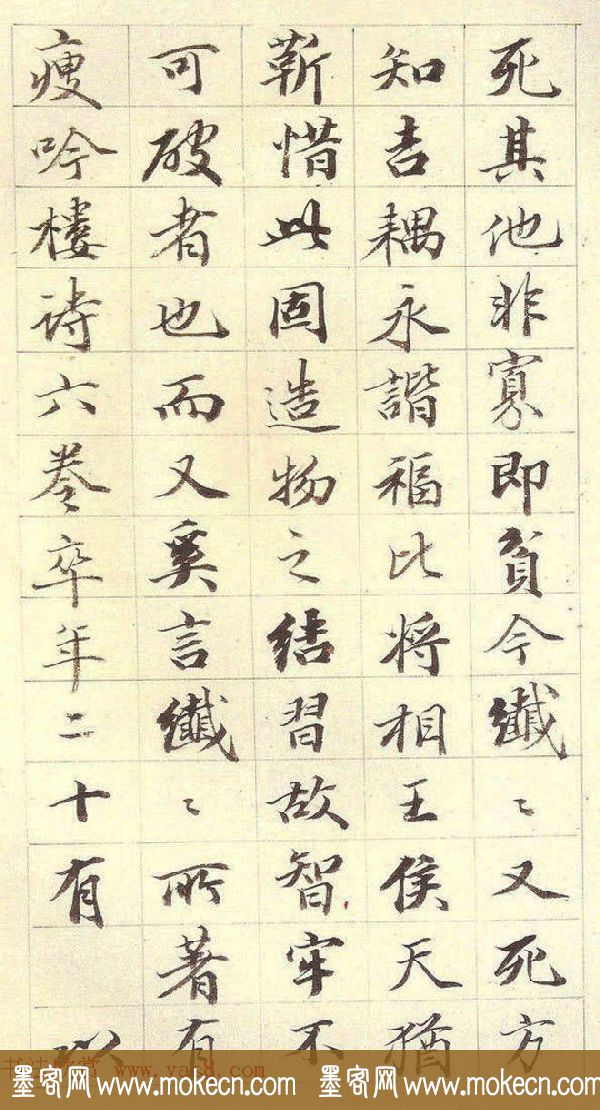 死其他非寡即貧今纖〻又死方
知吉耦永諧福比將相王侯天猶
靳惜此固造物之結習故智牢不
可破者也而又奚言纖〻所著有
瘦吟樓詩六卷卒年二十有
墨客网 www.mokecn.com 墨客网 www.mokecn.com